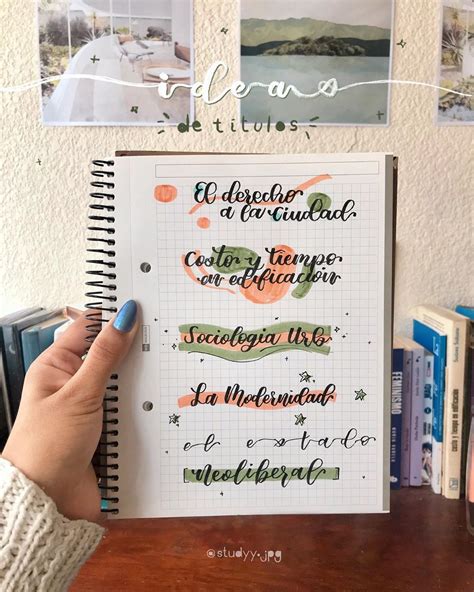 ideas
de titulos
El derecho
a la ciudad
Costo y tiempo
en edificación
Sociologia Urb
La Modernidad
el estado
Neoliberal
FEMINISMO
@studyy.jpg